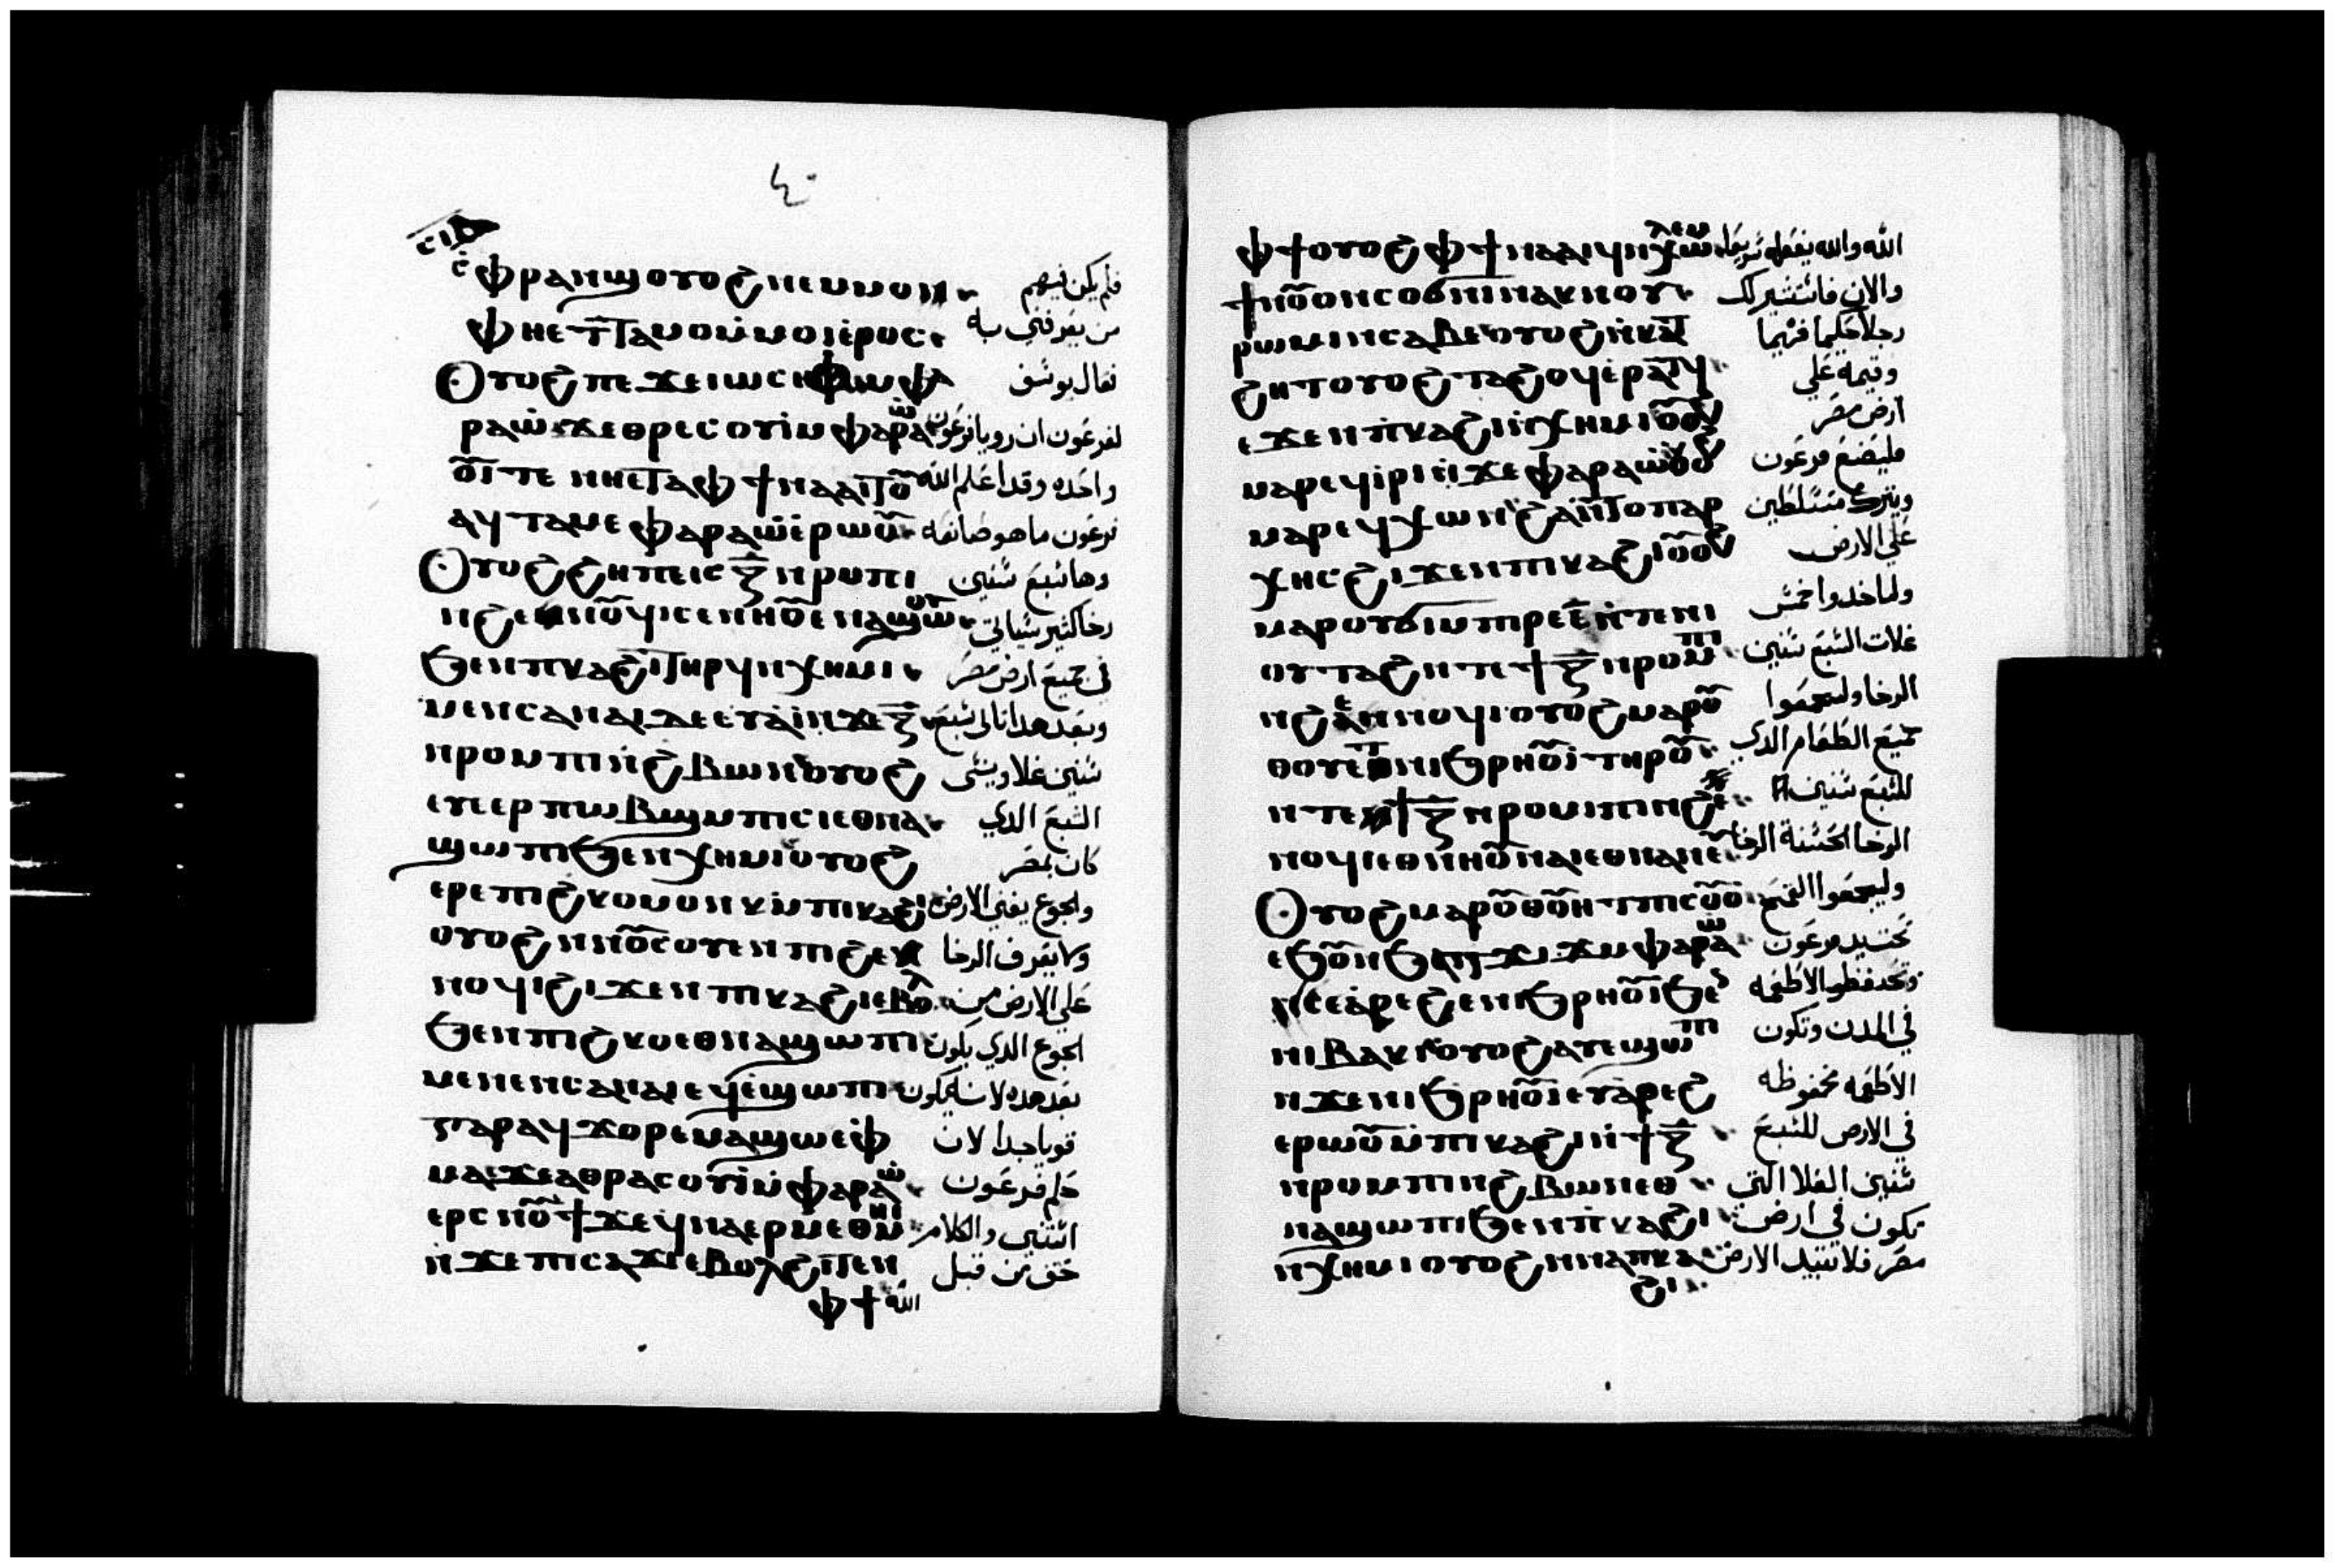 ٤٠
ⲫⲣⲁⲛϣ ⲟⲩⲟϩ ⲛⲉⲙⲙⲟⲛ فلم يكن فيهم
ⲫⲏⲉⲧⲧⲁⲙⲟ ⲙⲙⲟⲓ ⲉⲣⲟⲥ من يعرفني به
Ⲟⲩⲟϩ ⲡⲉϫⲉ ⲓⲱⲥⲏⲫ ⲙⲫⲁ فقال يوسف
ⲣⲁⲱ ϫⲉ ⲑⲣⲉⲥⲟⲩⲓ ⲙⲫⲁⲣⲁⲱ لفرعون ان رويا فرعون
ⲟⲩⲓ ⲧⲉ ⲛⲏⲉⲧⲁ ⲫϯ ⲛⲁⲁⲓⲧⲟⲩ واحده وقد اعلم الله
ⲁϥⲧⲁⲙⲉ ⲫⲁⲣⲁⲱ ⲉⲣⲱⲟⲩ فرعون ما هو صانعه
Ⲟⲩⲟϩ ϩⲏⲡⲡⲉ ⲓⲥ ⲍ ⲛⲣⲟⲙⲡⲓ وها سبع سنين
ⲛϩⲉⲛⲛⲟⲩϥⲓ ⲥⲉⲛⲏⲟⲩ ⲉⲛⲁϣⲱⲟⲩ رخا كثير سياتي
ϧⲉⲛ ⲡⲕⲁϩⲓ ⲧⲏⲣϥ ⲛⲭⲏⲙⲓ في جميع ارض مصر
ⲙⲉⲛⲥⲁ ⲛⲁⲓ ⲇⲉ ⲉⲩⲁⲓ ⲛϫⲉ ⲍ وبعد هدا تاتي سبع
ⲛⲣⲟⲙⲡⲓ ⲛϩⲃⲱⲛ ⲟⲩⲟϩ سنين غلا وينسى
ⲉⲩⲉⲉⲣⲡⲱⲃϣ ⲙⲡⲓⲥⲓ ⲉⲑⲛⲁ الشبع الدي
ϣⲱⲡⲓ ϧⲉⲛ ⲭⲏⲙⲓ ⲟⲩⲟϩ كان بمصر
ⲉⲣⲉ ⲡⲓϩⲕⲟ ⲙⲟⲩⲛⲕ ⲙⲡⲓⲕⲁϩⲓ والجوع يفني الارض
ⲟⲩⲟϩ ⲛⲛⲟⲩⲥⲟⲩⲉⲛ ⲡⲓϩⲉ ولا يعرف الرخا
ⲛⲟⲩϥⲓ ϩⲓϫⲉⲛ ⲡⲓⲕⲁϩⲓ ⲉⲃⲟⲗ علي الارض من
ϧⲉⲛ ⲡⲓϩⲕⲟ ⲉⲑⲛⲁϣⲱⲡⲓ الجوع الدي يكون
ⲙⲉⲛⲉⲛⲥⲁ ⲛⲁⲓ ⲉϥⲉϣⲱⲡⲓ بعد هده لانه يكون
ⲅⲁⲣ ⲁϥϫⲟⲣ ⲉⲙⲁϣⲱ ⲉⲫ قويا جدا لان
ⲙⲁ ϫⲉ ⲁ ⲑⲣⲁⲥⲟⲩⲓ ⲙⲫⲁⲣⲁⲱ حلم فرعون
ⲉⲣ ⲥⲛⲟⲩϯ ϫⲉ ϥⲛⲁⲉⲣⲙⲉⲑⲙⲏⲓ اثنتين والكلام
ⲛϫⲉ ⲡⲓⲥⲁϫⲓ ⲉⲃⲟⲗϩⲓⲧⲉⲛ حق من قبل
ⲫϯ الله
ⲫϯ ⲟⲩⲟϩ ⲫϯ ⲛⲁⲁⲓϥ ⲛⲭⲱⲗⲉⲙ الله والله يفعله سريعا
ϯⲛⲟⲩ ⲟⲩⲛ ⲥⲟϭⲛⲓ ⲛⲁⲕ ⲛⲟⲩ والان فاستشير لك
ⲣⲱⲙⲓ ⲛⲥⲁⲃⲉ ⲟⲩⲟϩ ⲛⲕⲁⲧ رجلا حكيما فهيما
ϩⲏⲧ ⲟⲩⲟϩ ⲧⲁϩⲟϥ ⲉⲣⲁⲧϥ وقيمه علي
ⲉϫⲉⲛ ⲡⲕⲁϩⲓ ⲛⲭⲏⲙⲓ ⲟⲩⲟϩ ارض مصر
ⲙⲁⲣⲉϥⲓⲣⲓ ⲛϫⲉ ⲫⲁⲣⲁⲱ ⲟⲩⲟϩ فليصنع فرعون
ⲙⲁⲣⲉϥⲭⲱ ⲛϩⲁⲛⲧⲟⲡⲁⲣ ويترك متسلطين
ⲭⲏⲥ ϩⲓϫⲉⲛ ⲡⲓⲕⲁϩⲓ ⲟⲩⲟϩ علي الارض
ⲙⲁⲣⲟⲩϭⲓ ⲙⲡⲣⲉ ⲉ ⲛⲧⲉ ⲛⲓ ولياخدوا خمس
ⲟⲩⲧⲁϩ ⲛⲧⲉ ϯⲍ ⲛⲣⲟⲙⲡⲓ غلات السبع سنين
ⲛϩⲉⲛⲛⲟⲩϥⲓ ⲟⲩⲟϩ ⲙⲁⲣⲟⲩ الرخا وليجمعوا
ⲑⲟⲩⲉⲧ ⲛⲓϧⲣⲏⲟⲩⲓ ⲧⲏⲣⲟⲩ جميع الطعام الدي
ⲛⲧⲉ ϯⲍ ⲛⲣⲟⲙⲡⲓ ⲛϩⲉ للسبع سنين
ⲛⲟⲩϥⲓ ⲉⲑⲛⲏⲟⲩ ⲛⲁⲓ ⲉⲑⲛⲁⲛⲉ الرخا الحسنة
Ⲟⲩⲟϩ ⲙⲁⲣⲟⲩⲑⲟⲩⲏⲧ ⲡⲓⲥⲟⲩⲟ وليجمعوا القمح
ⲉϧⲟⲩⲛ ϧⲁ ⲧϫⲓϫ ⲙⲫⲁⲣⲁⲱ تحت يد فرعون
ⲛⲥⲉⲁⲣⲉϩ ⲉⲛⲓϧⲣⲏⲟⲩⲓ ϧⲉⲛ وتحتفظوا الاطعمه
ⲛⲓⲃⲁⲕⲓ ⲟⲩⲟϩ ⲁⲩⲉϣⲱⲡⲓ في المدن وتكون
ⲛϫⲉ ⲛⲓϧⲣⲏⲟⲩⲓ ⲉⲩⲁⲣⲉϩ الاطعمه محفوظه
ⲉⲣⲱⲟⲩ ⲙⲡⲓⲕⲁϩⲓ ⲛϯⲍ في الارض للسبع
ⲛⲣⲟⲙⲡⲓ ⲛϩⲃⲱⲛ ⲉⲑ سنين الغلا التي
ⲛⲁϣⲱⲡⲓ ϧⲉⲛ ⲡⲕⲁϩⲓ تكون في ارض
ⲛⲭⲏⲙⲓ ⲟⲩⲟϩ ⲛⲛⲁ ⲡⲕⲁ مصر فلا تبيد الارض
ϩⲓ